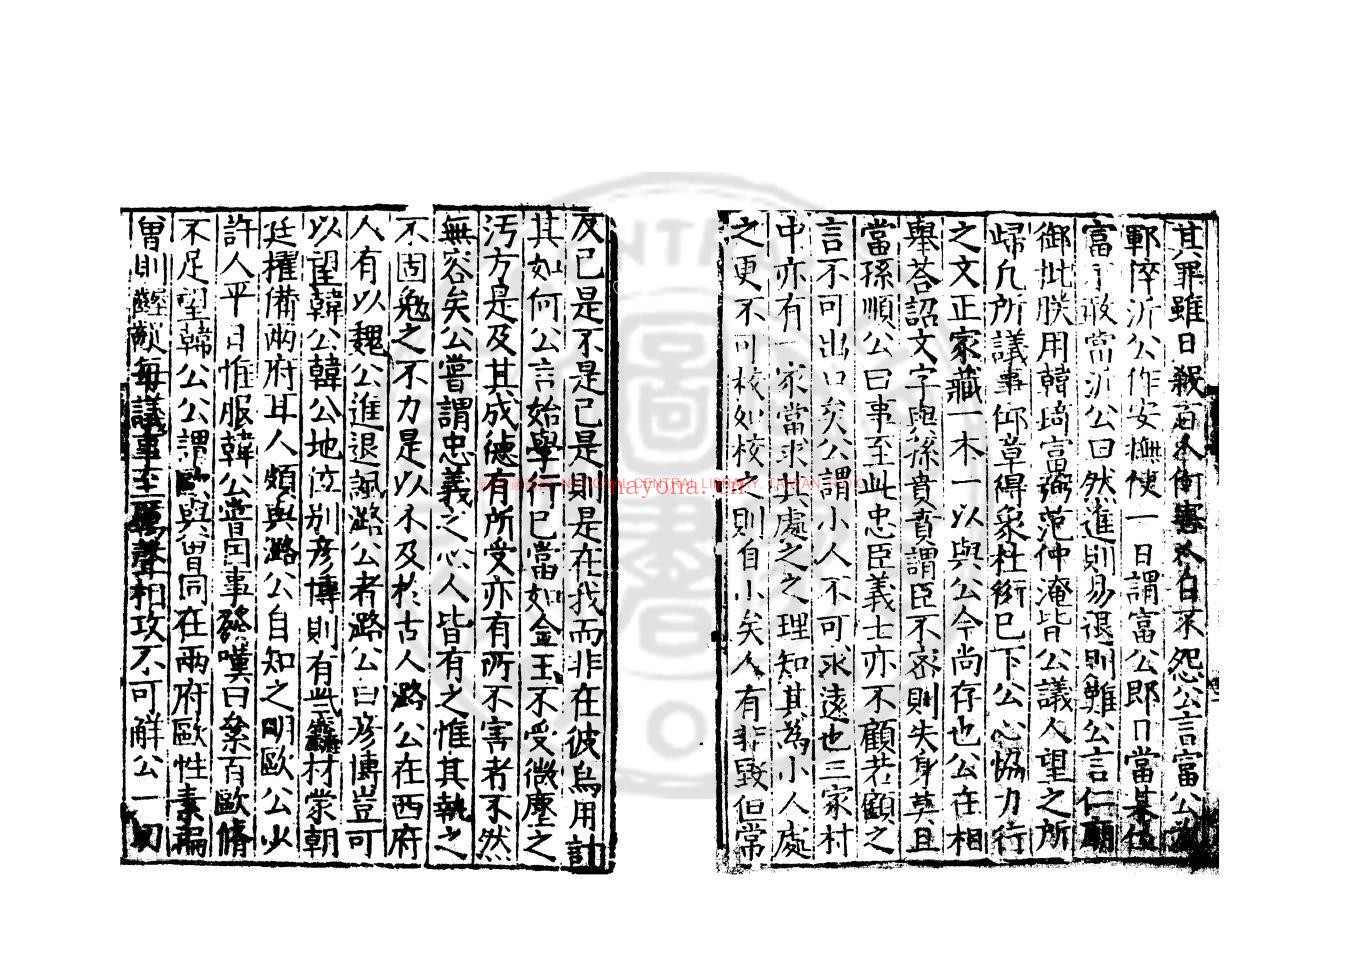 其罪雖日殺百人何害公自不怨公言富公為
鄆倅沂公作安撫使一日謂富公郎日當某位
富子敢當沂公曰然進則易退則難公言仁廟
御批朕用韓琦富弼范仲淹皆公議人望之所
歸凡所議事仰章得象杜衍已下公心恊力行
之文正家藏一本一以與公今尚存也公在相
舉荅詔文字與孫賁賁謂臣不密則失身莫且
當孫順公曰事至此忠臣義士亦不顧若顧之
言不可出口矣公謂小人不可求遠也三家村
中亦有一家當求其處之之理知其為小人處
之更不可校如校之則自小矣人有非毀但當
反已是不是已是則是在我而非在彼烏用計
其如何公言始學行已當如金玉不受微塵之
汚方是及其成德有所受亦有所不害者不然
無容矣公嘗謂忠義之心人皆有之惟其執之
不固勉之不力是以不及於古人潞公在西府
人有以魏公進退諷潞公者潞公曰彦博豈可
以望韓公韓公地位别彦博則有些麤材蒙朝
廷擢備兩府耳人頗與潞公自知之明歐公少
許人平日惟服韓公嘗因事發嘆曰絫百歐脩
不足望韓公公謂歐與曾同在兩府歐性素褊
曾則齷齪每議事至厲聲相攻不可解公一切